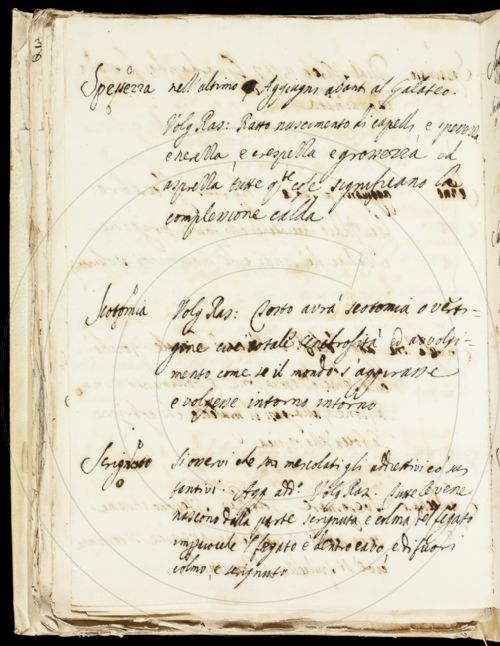 Spessezza nell'ultimo Aggiugni avanti al Galateo.
Volg Ras: Ratto nascimento di capelli, e spessezza
e nerezza, e crespezza e grossezza, ed
asprezza tutte q.te cose significano la
complessione calda
Scotomia Volg Ras: Costo avrà scotomia o verti-
gine cioè totale ed avvolgi-
mento come se il mondo s'aggirasse
e volgesse intorno intorno
Scrignuto Si osservi che son mescolati gli addiettivi co' sus
tantivi. Agg. add.o Volg Ras. Tutte le vene
nascono dalla parte scrignuta e colma del fegato
impercioche 'l fegato è dentro cavo, e di fuori
colmo, e scrignuto